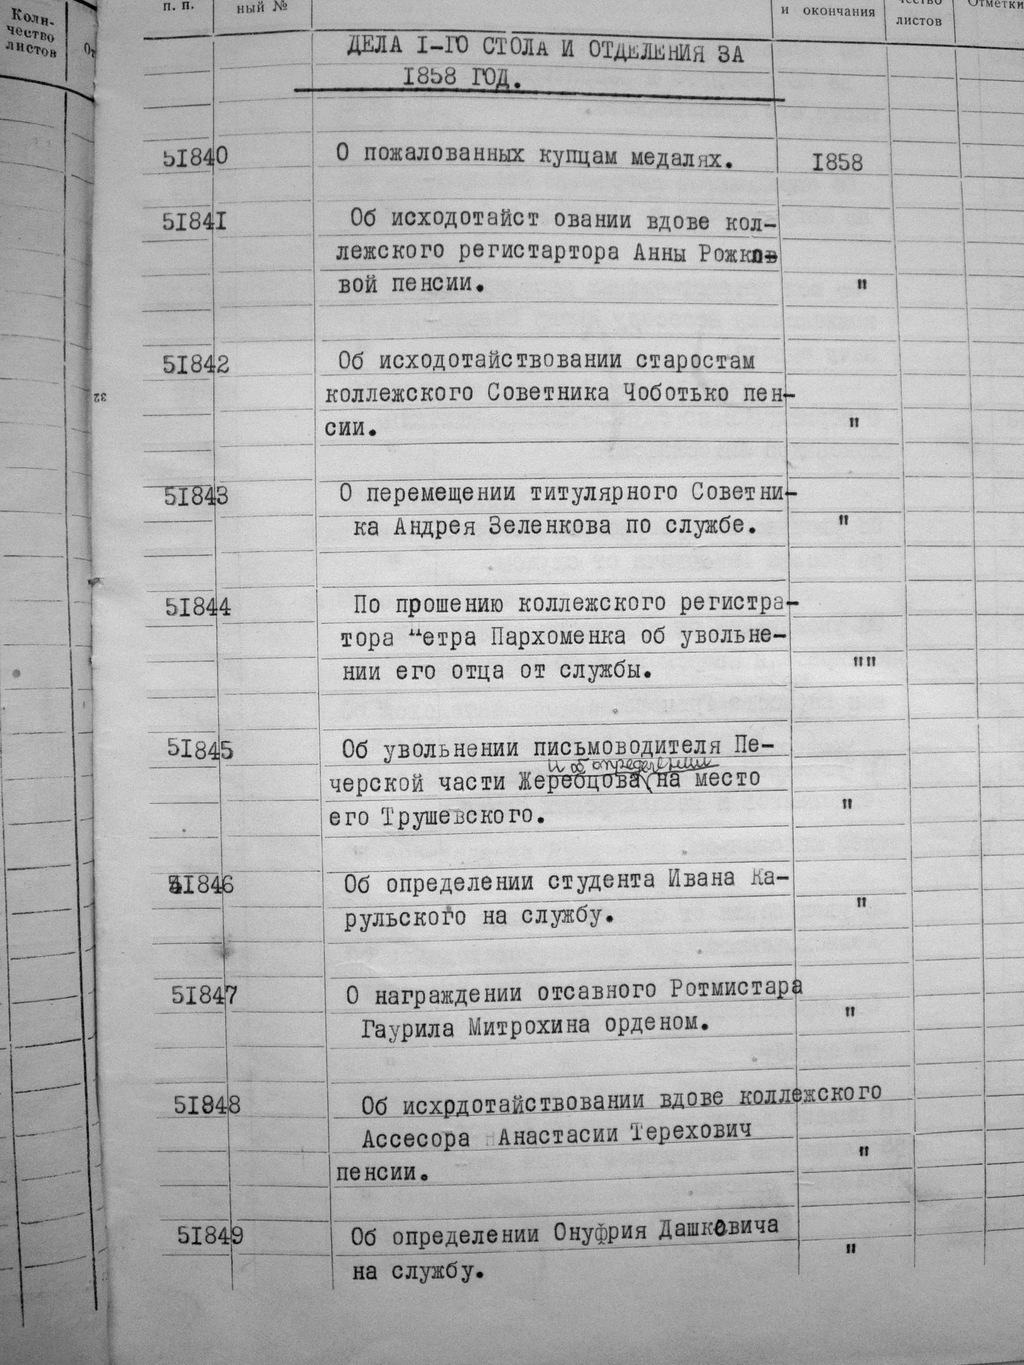 Коли-
чество
листов
От
п. п.
ный №
и окончания
чество
листов
Отметки
ДЕЛА I-ГО СТОЛА И ОТДЕЛЕНИЯ ЗА
1858 ГОД.
51840 О пожалованных купцам медалях. 1858
51841 Об исходотайст овании вдове кол-
лежского регистартора Анны Рожко-
вой пенсии. "
32
51842 Об исходотайствовании старостам
коллежского Советника Чоботько пен-
сии. "
51843 О перемещении титулярного Советни-
ка Андрея Зеленкова по службе. "
51844 По прошению коллежского регистра-
тора Петра Пархоменка об увольне-
нии его отца от службы. ""
51845 Об увольнении письмоводителя Пе-
и об определении
черской части Жеребцова на место
его Трушевского. "
51846 Об определении студента Ивана Ка-
рульского на службу. "
51847 О награждении отсавного Ротмистара
Гаурила Митрохина орденом. "
51848 Об исхрдотайствовании вдове коллежского
Ассесора Анастасии Терехович
пенсии. "
51849 Об определении Онуфрия Дашковича
на службу. "